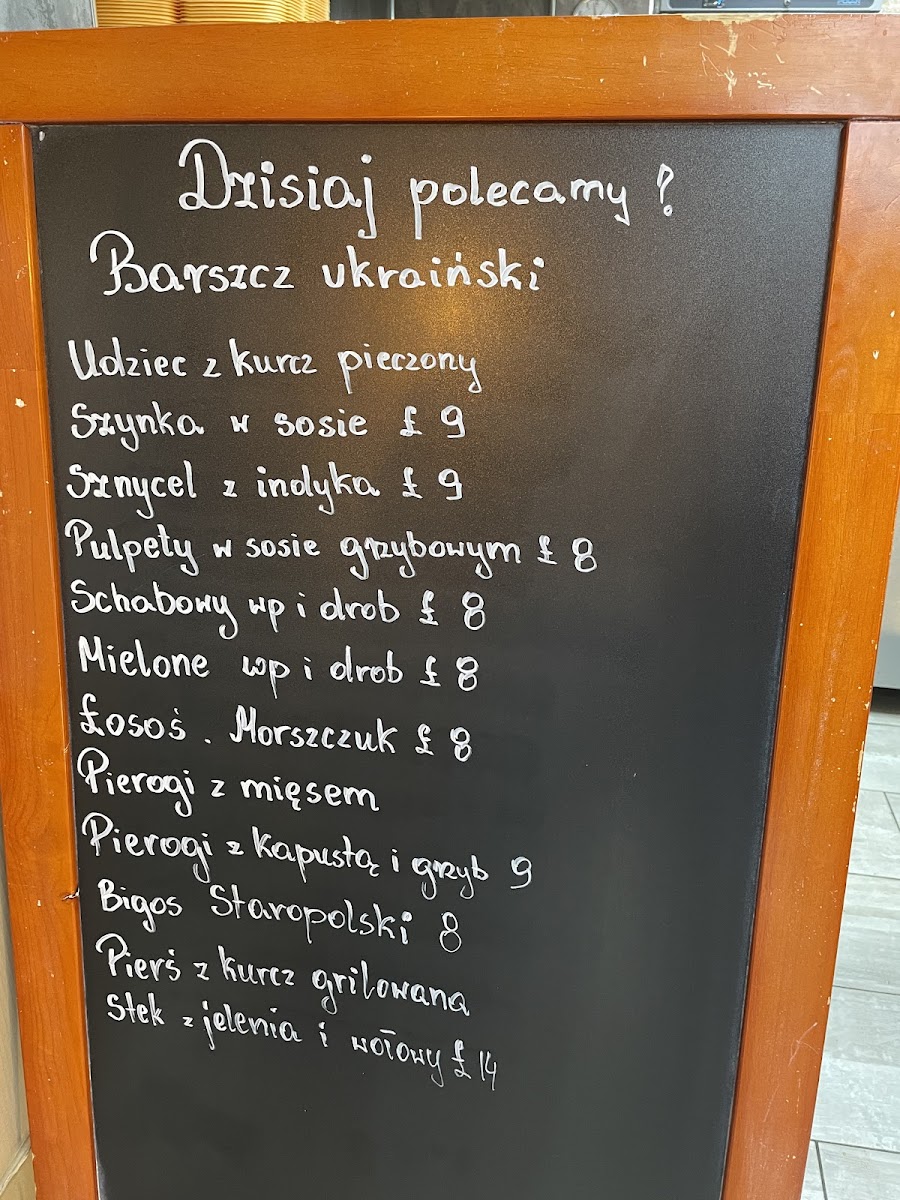 Dzisiaj polecamy !
Barszcz ukraiński
Udziec z kurcz pieczony
Szynka w sosie £ 9
Sznycel z indyka £ 9
Pulpety w sosie grzybowym £ 8
Schabowy wp i drob £ 8
Mielone wp i drob £ 8
Łosoś . Morszczuk £ 8
Pierogi z mięsem
Pierogi z kapustą i grzyb 9
Bigos Staropolski 8
Pierś z kurcz grilowana
Stek z jelenia i wołowy £ 14